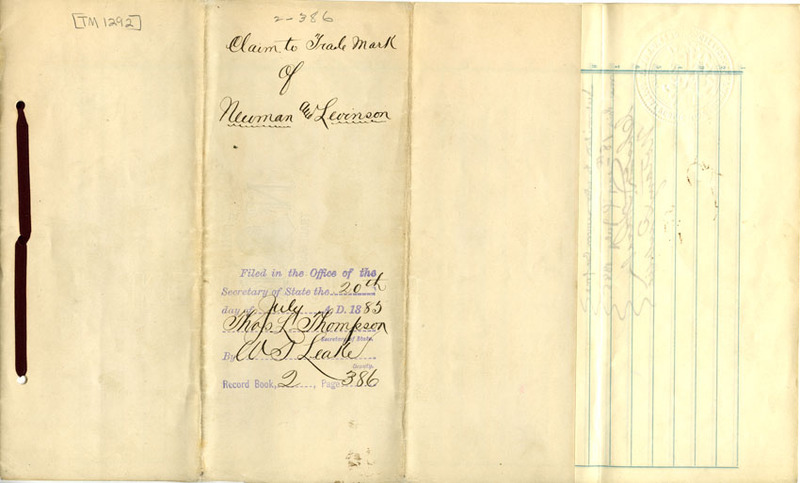 [TM 1292]
2-386
Claim to Trade Mark
of
Newman and Levinson
Filed in the Office of the
Secretary of State the 20th
day of July A.D. 1885
Thos L. Thompson
Secretary of State.
By W S Leake
Deputy.
Record Book, 2, Page 386